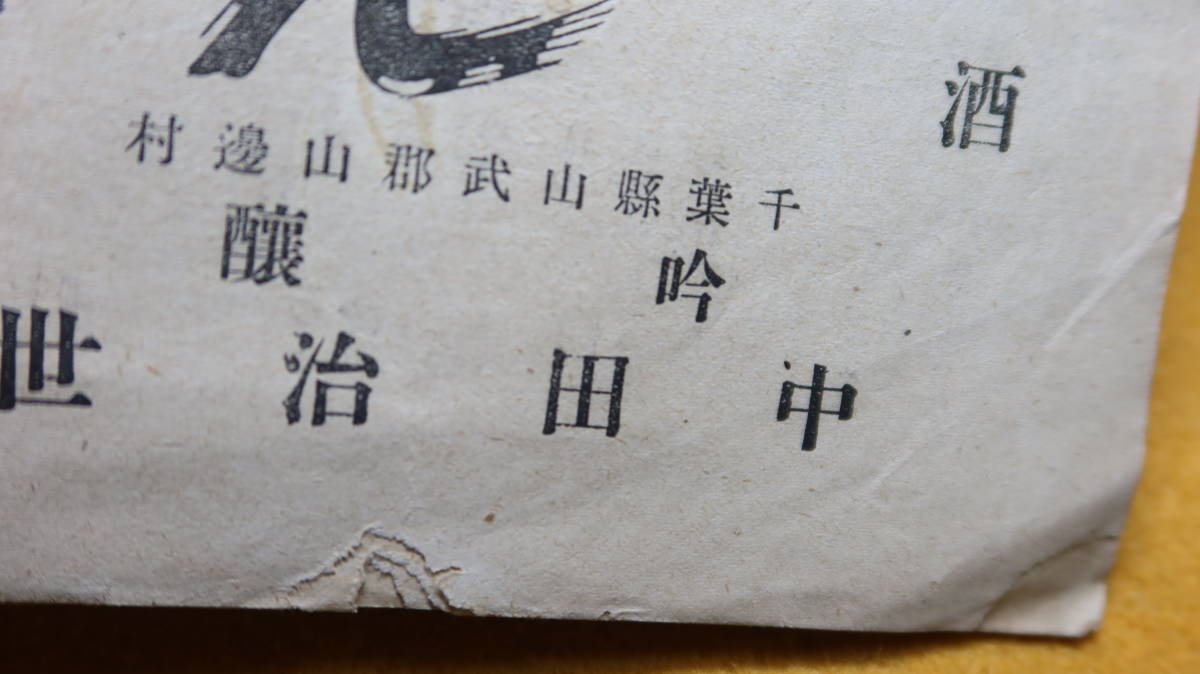 酒
千葉縣山武郡山邊村
吟釀
中田治世